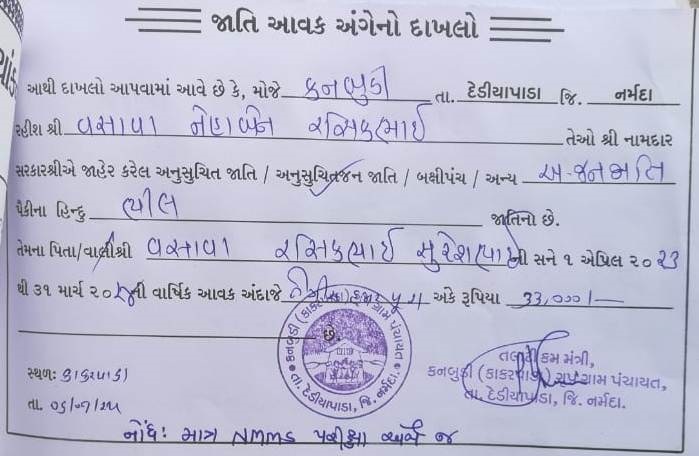 જાતિ આવક અંગેનો દાખલો
આથી દાખલો આપવામાં આવે છે કે, મોજે કનબુડી તા. દેડીયાપાડા જિ. નર્મદા
રહીશ શ્રી વસાવા નેહાબેન રસિકભાઈ તેઓ શ્રી નામદાર
સરકારશ્રીએ જાહેર કરેલ અનુસુચિત જાતિ / અનુસુચિતજન જાતિ / બક્ષીપંચ / અન્ય અ.જનજાતિ
પૈકીના હિન્દુ ભીલ જાતિનો છે.
તેમના પિતા/વાલીશ્રી વસાવા રસિકભાઈ સુરેશભાઈ ની સને ૧ એપ્રિલ ૨૦૨૩
થી ૩૧ માર્ચ ૨૦૨૪ની વાર્ષિક આવક અંદાજે અંકે રૂપિયા 33,000/-
છે.
કનબુડી (કાકરપાડા) ગ્રુપ ગ્રામ પંચાયત
તા. દેડીયાપાડા, જિ. નર્મદા.
સ્થળ: કાકરપાડા
તા.
તલાટી કમ મંત્રી,
કનબુડી (કાકરપાડા) ગ્રુપ ગ્રામ પંચાયત,
તા. દેડીયાપાડા, જિ. નર્મદા.
નોંધ: માત્ર NMMS પરીક્ષા અર્થે જ